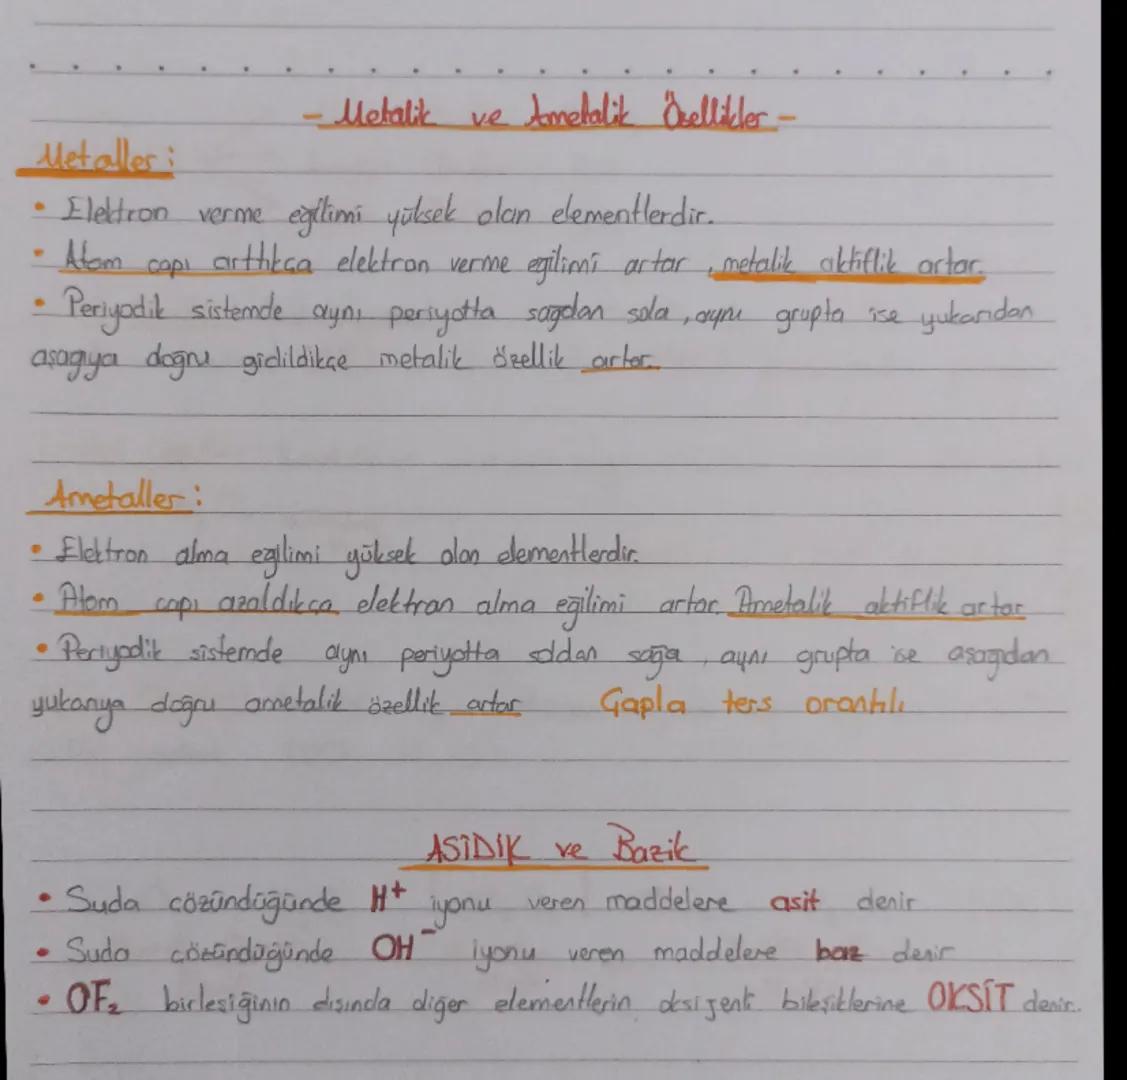 - Metalik ve Ametalik Özellikler -
Metaller:
• Elektron verme eğilimi yüksek olan elementlerdir.
• Atom çapı arttıkça elektron verme eğilimi artar, metalik aktiflik artar.
• Periyodik sistemde aynı periyotta sağdan sola, aynı grupta ise yukarıdan
aşağıya doğru gidildikçe metalik özellik artar.
Ametaller:
• Elektron alma eğilimi yüksek olan elementlerdir.
• Atom çapı azaldıkça elektron alma eğilimi artar. Ametalik aktiflik artar
• Periyodik sistemde aynı periyotta soldan sağa, aynı grupta ise aşağıdan
yukarıya doğru ametalik özellik artar Çapla ters orantılı
ASİDİK ve Bazik
• Suda çözündüğünde H⁺ iyonu veren maddelere asit denir
• Suda çözündüğünde OH⁻ iyonu veren maddelere baz denir
• OF₂ birleşiğinin dışında diğer elementlerin oksijenli bileşiklerine OKSİT denir.